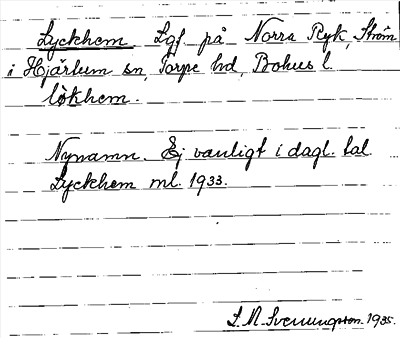 Lyckhem Lgf på Norra Ryk, Ström
i Hjärtum sn, Torpe hd, Bohus l.
løkhem.
Nynamn. Ej vanligt i dagl. tal.
Lyckhem ml. 1933.
S. M. Svenungsson. 1935.